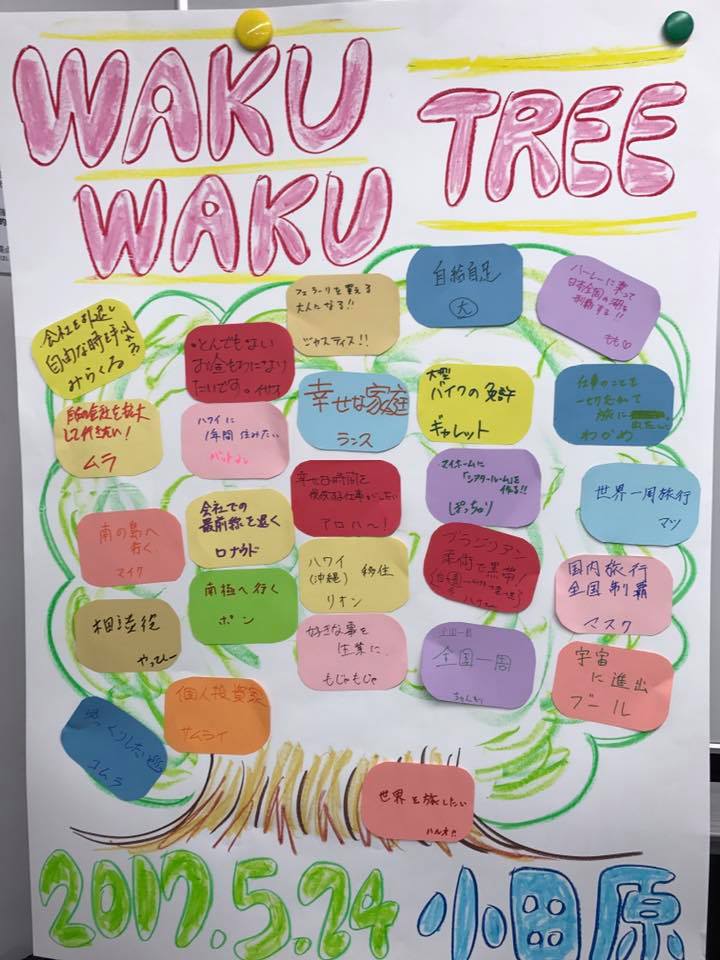 WAKU TREE
WAKU
フェラーリを買える
大人になる!!
ジャスティス!!
自給自足
大
ハーレーに乗って
日本全国の湖を
制覇する!!
もも♡
会社を引退し
自由な時を
みらくる
・とんでもない
お金もちになり
たいです。イサオ
幸せな家庭
ランス
大型
バイクの免許
ギャレット
仕事のことを
一切忘れて
旅に
わかめ
自分の会社を拡大
していきたい!
ムラ
ハワイに
1年間住みたい
幸せな時間を
仕事がしたい
アロハ〜!
マイホームに
「シアタールーム」を
作る!!
ぽっちゃり
世界一周旅行
マツ
南の島へ
行く
マイク
会社での
最前線を退く
ロナウド
ハワイ
(沖縄) 移住
リオン
ブラジリアン
柔術で黒帯!
国内旅行
全国制覇
マスク
相談役
やってぃー
南極へ行く
ポン
好きな事を
生業に
もじゃもじゃ
全国一周
全国一周
ちゃんもり
宇宙
に進出
ブール
ゆっくりしたい
コムラ
個人投資家
サムライ
世界を旅したい
ハルオ!!
2017.5.24 小田原